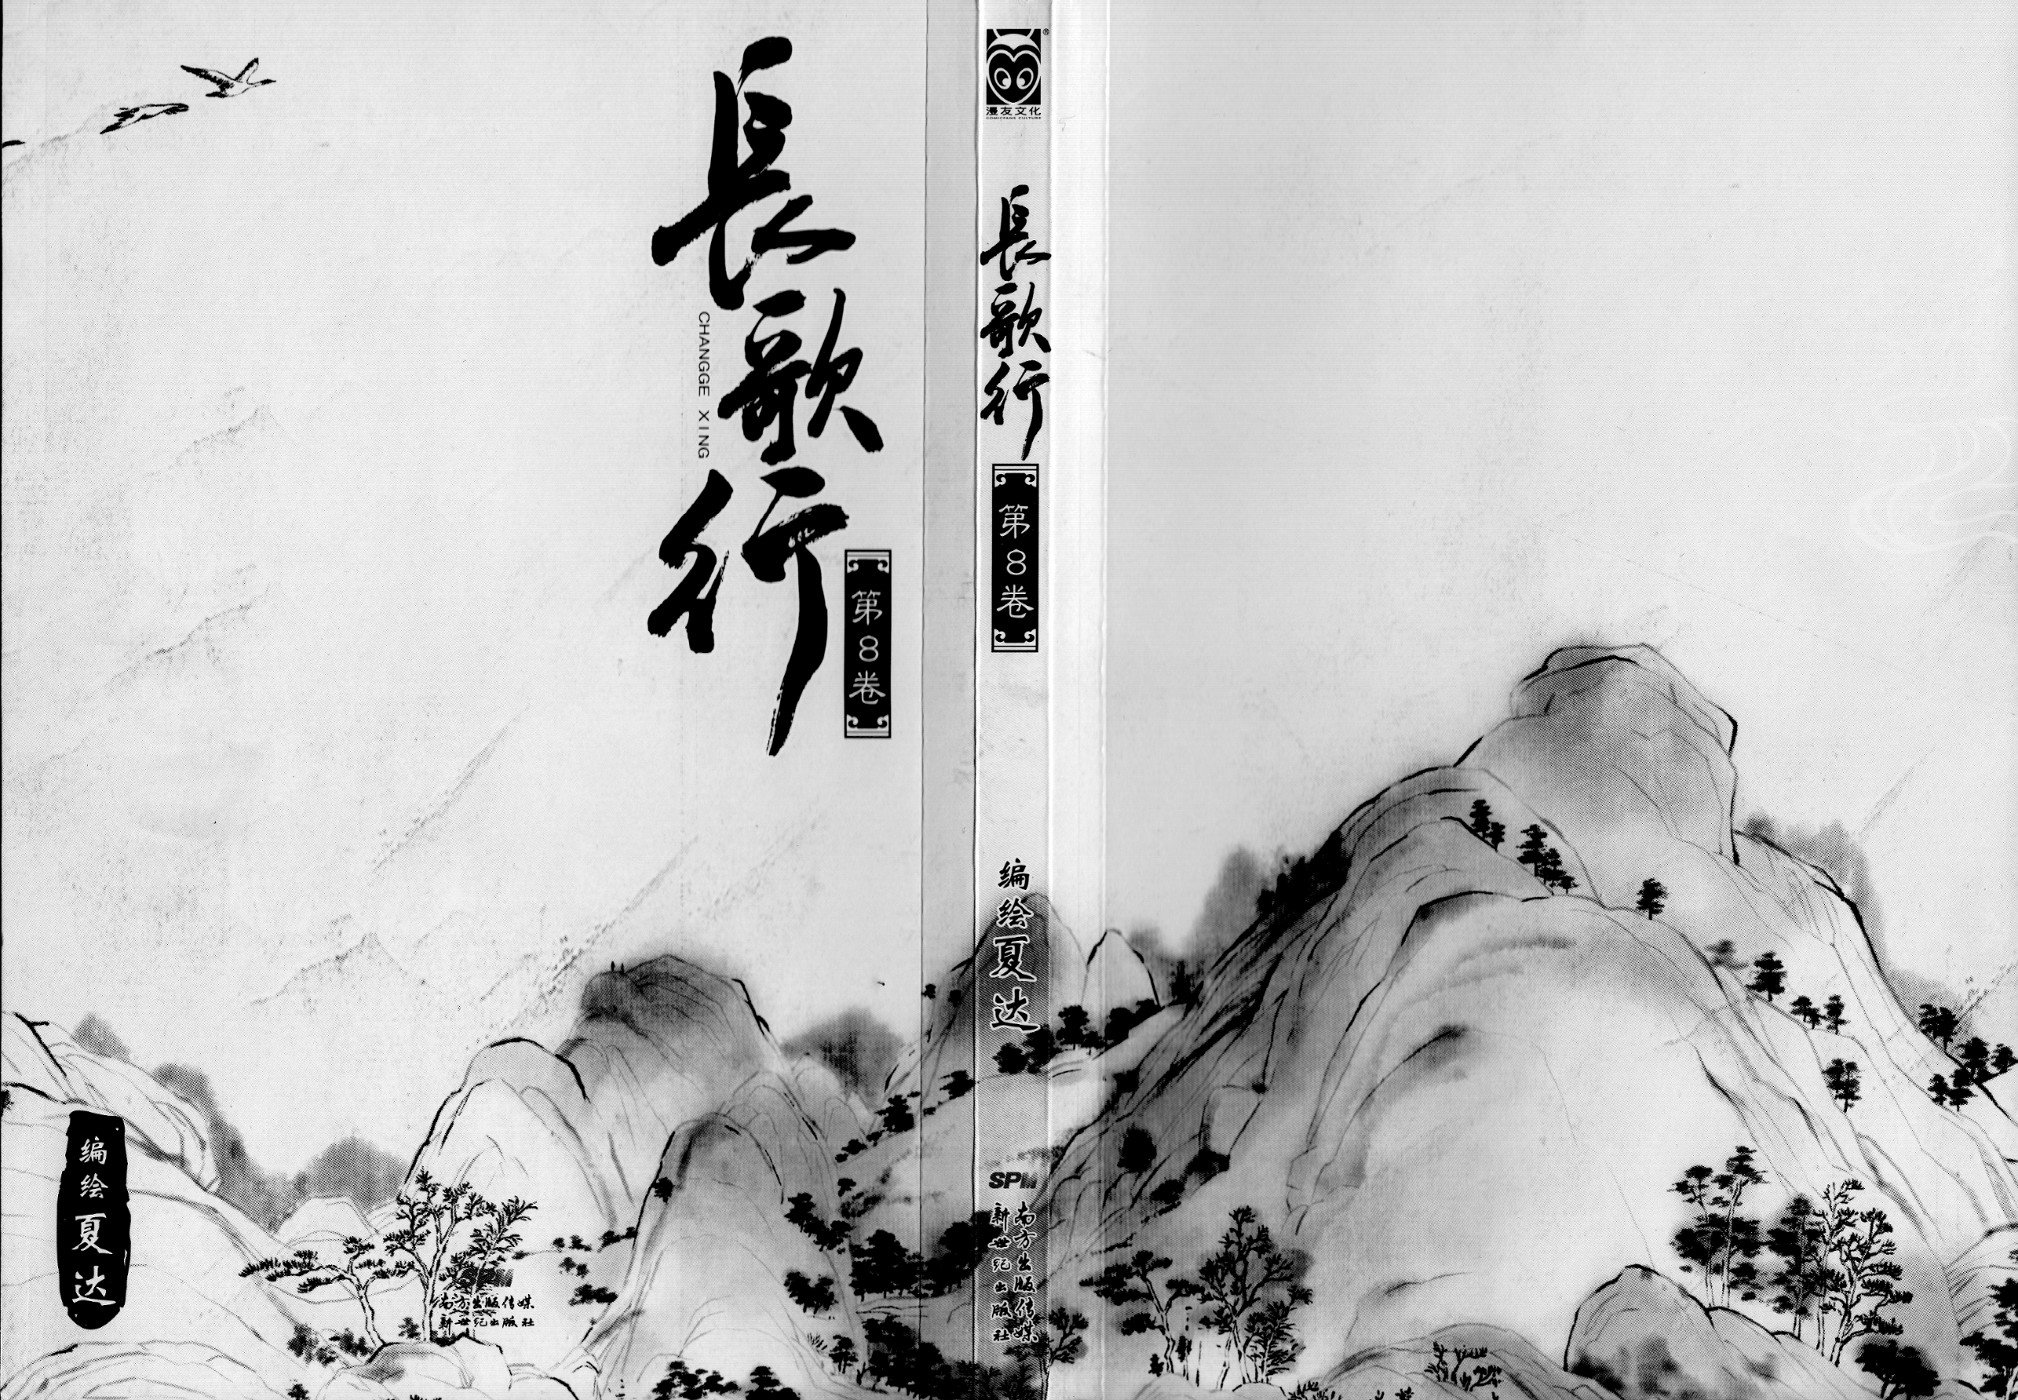 長歌行
CHANGGE XING
第8卷
编绘 夏达
南方出版传媒
新世纪出版社
漫友文化
COMICFANS CULTURE
長歌行
第8卷
编绘 夏达
SPM
南方出版传媒
新世纪出版社